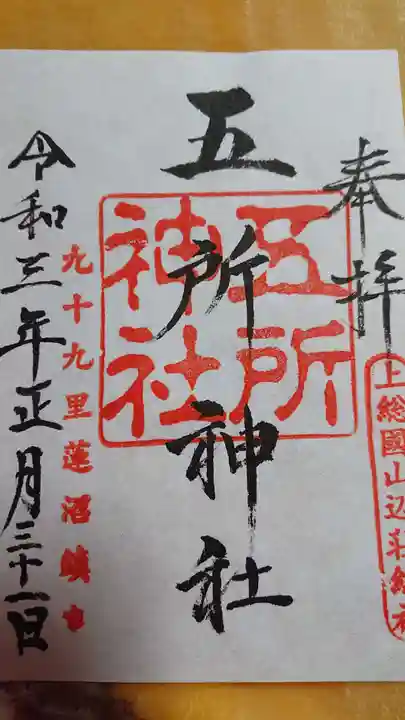 奉拝
上総國山辺荘総社
五所神社
五所
神社
九十九里蓮沼鎮守
令和三年正月三十一日